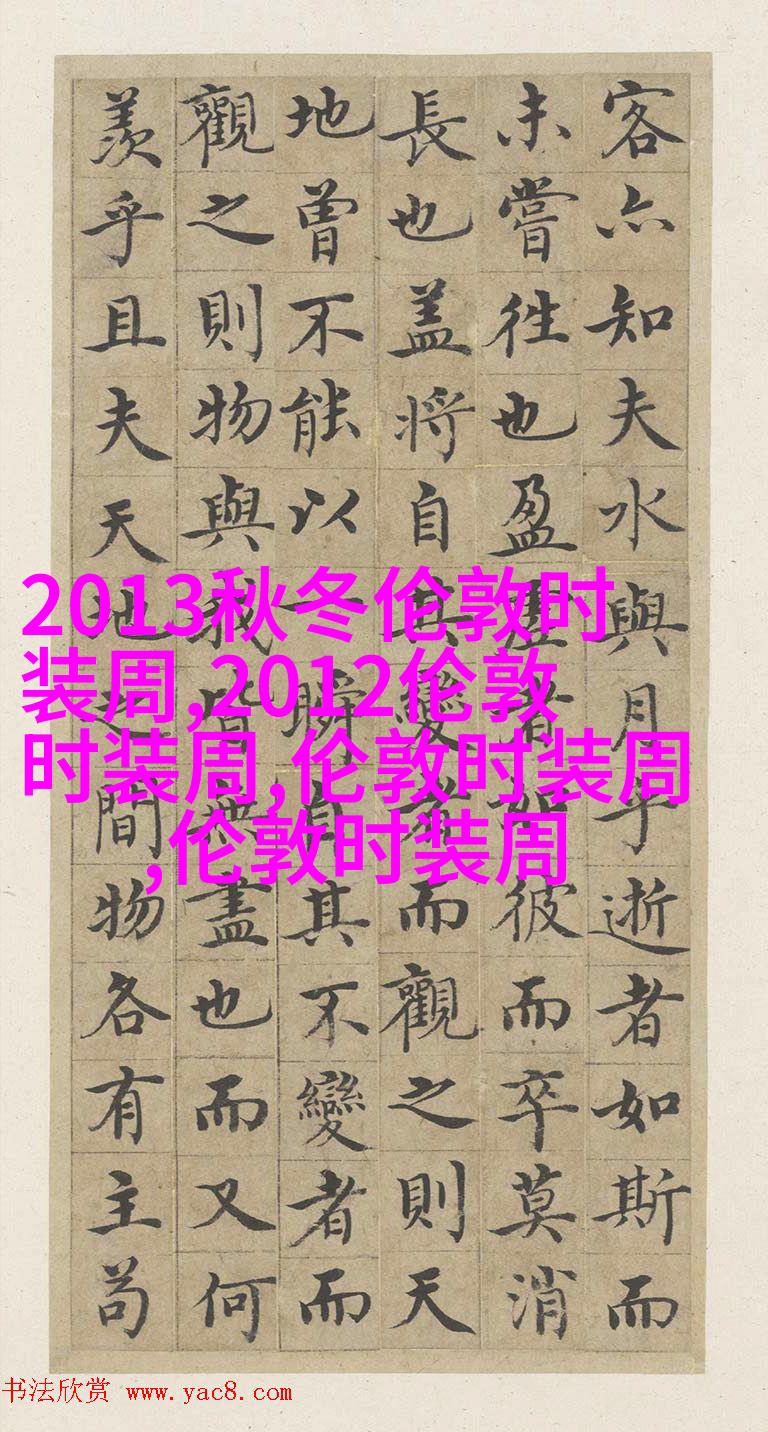 客亦知夫水與月乎逝者如斯而
未嘗往也盈虛者如彼而卒莫消
長也盖將自其變者而觀之則天
地曾不能以一瞬自其不變者而
觀之則物與我皆無盡也而又何
羨乎且夫天地之間物各有主苟
2013秋冬伦敦时
装周,2012伦敦
时装周,伦敦时装周
,伦敦时装周
书法欣赏 www.yac8.com